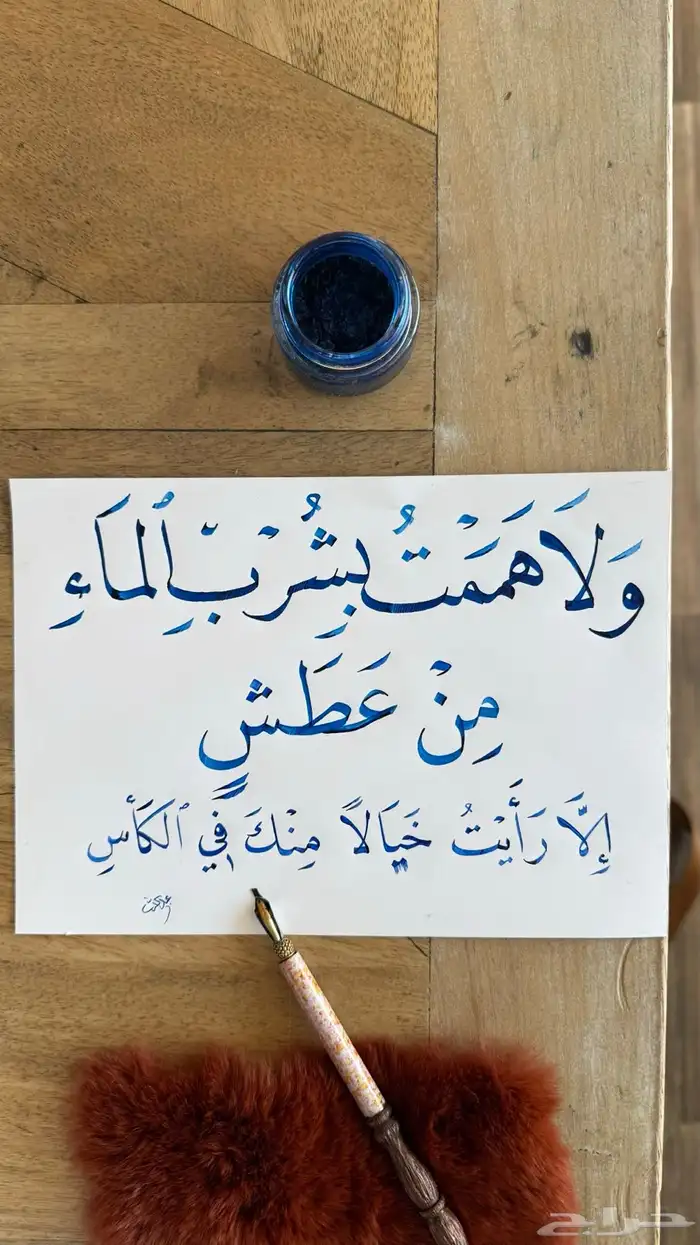 وَلَا هَمَمْتُ بِشُرْبِ ٱلْمَاءِ
مِنْ عَطَشٍ
إِلَّا رَأَيْتُ خَيَالًا مِنْكَ فِي ٱلكَأْسِ
حراج